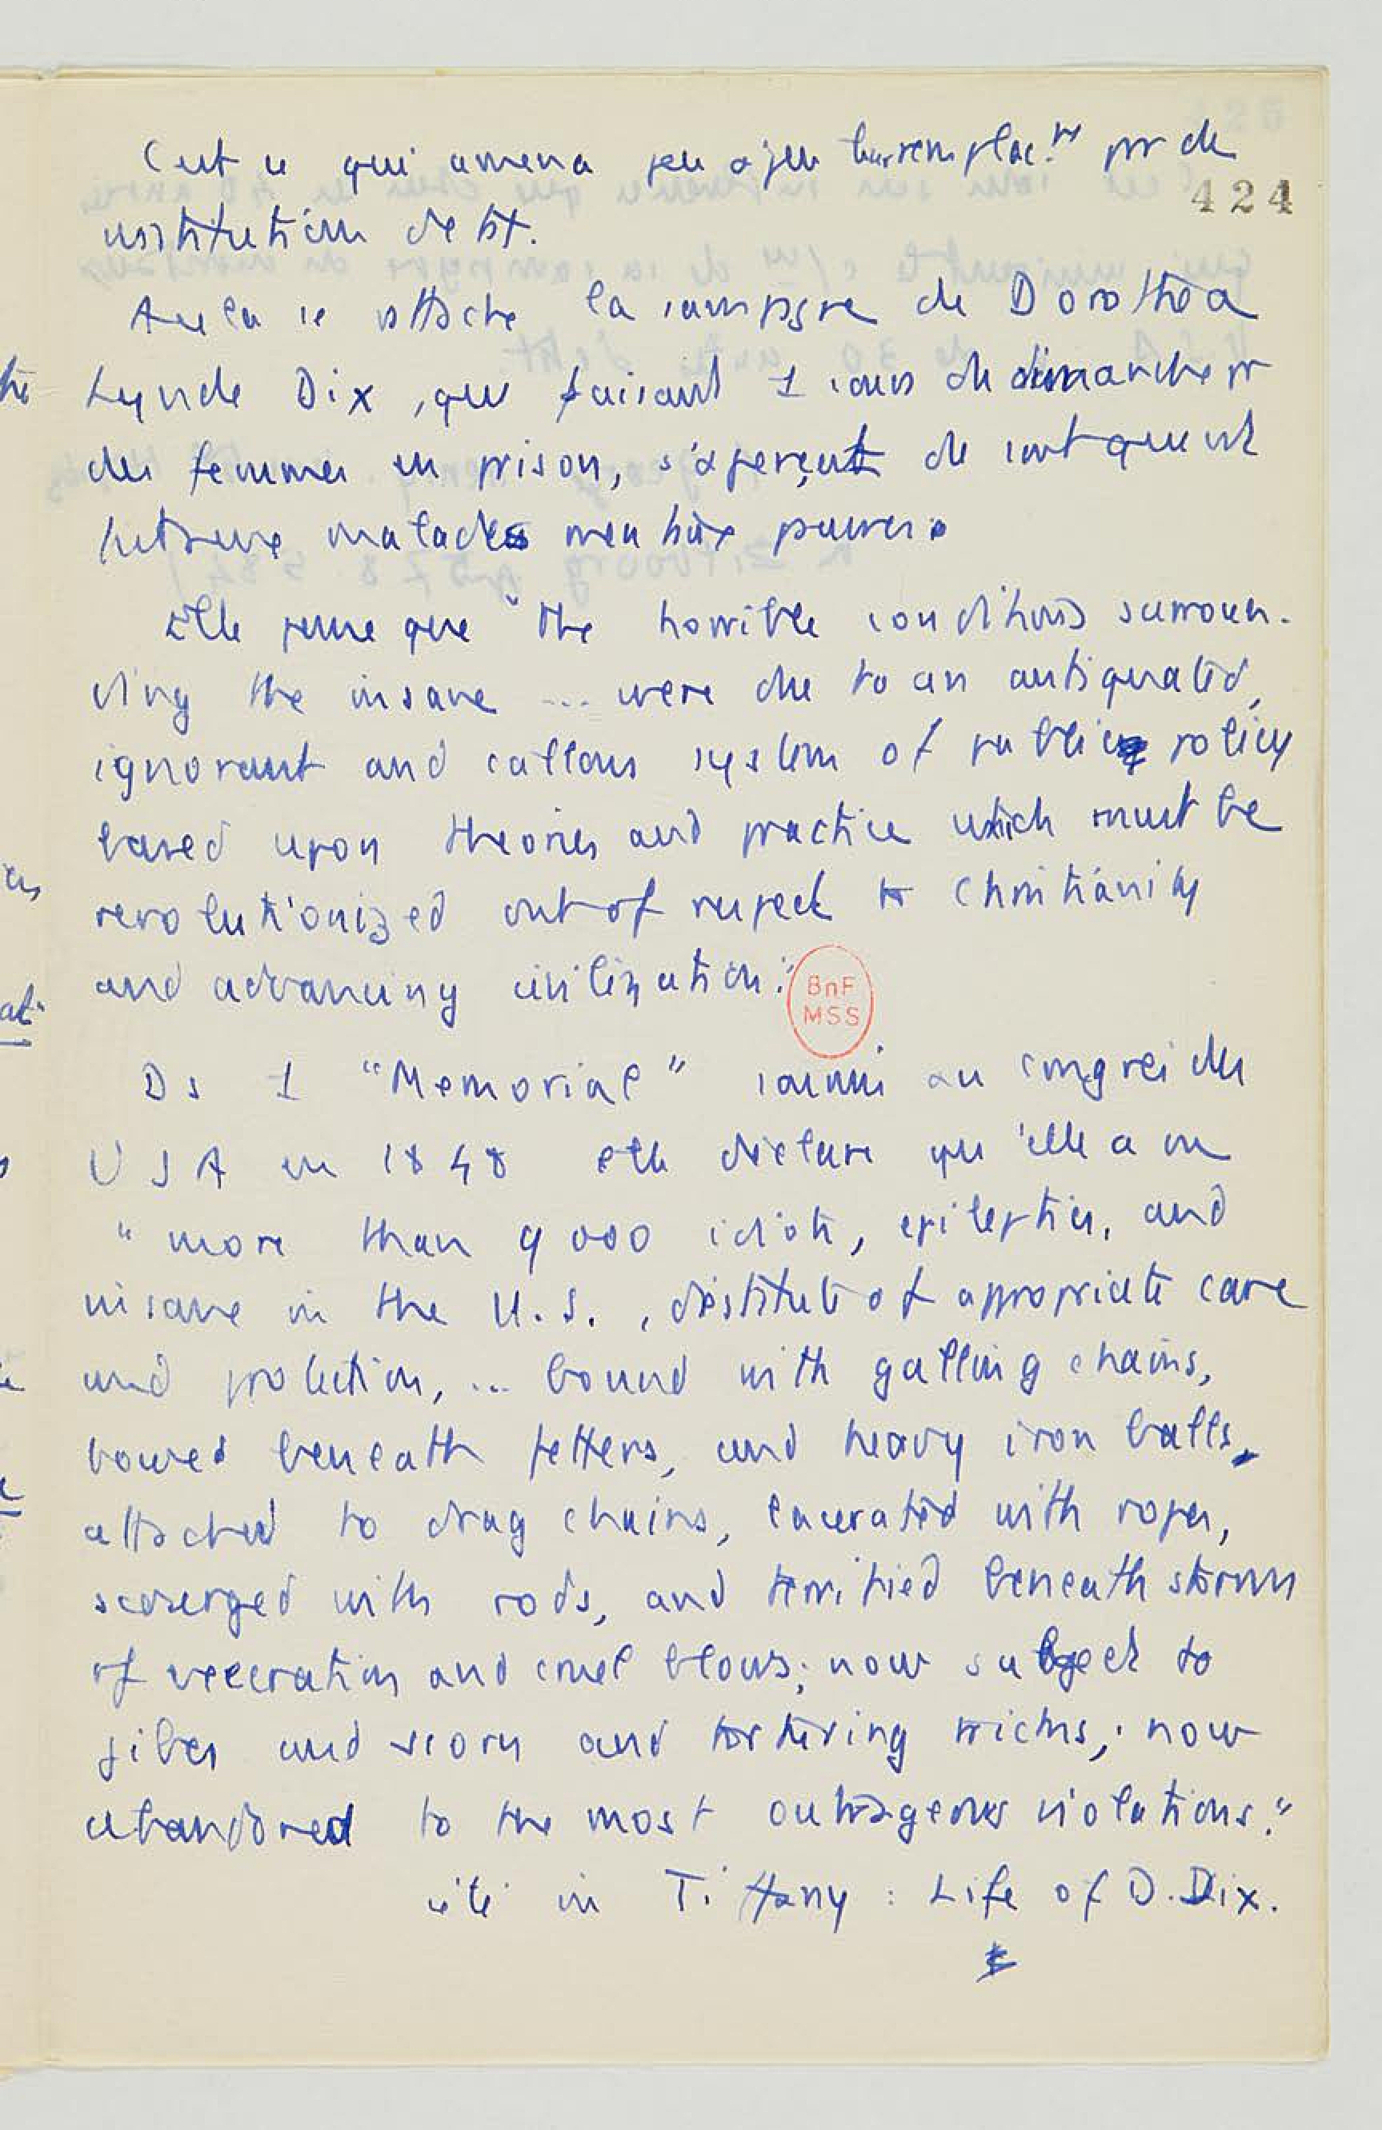 C'est ce qui amena peu à peu leur remplac.nt pr des
424
institutions d'etat.
A cela se rattache la campagne de Dorothea
Lynde Dix, qui faisant 1 cours du dimanche pr
des femmes en prison, s'aperçut de
malades mentaux pauvres
Elle pense que "the horrible conditions surroun-
ding the insane ... were due to an antiquated,
ignorant and callous system of public policy
based upon theories and practice which must be
revolutionized out of respect to Christianity
and advancing civilization."
BnF
MSS
Ds 1 "Memorial" soumis au congrès des
USA en 1848 elle déclare qu'elle a vu
"more than 9 000 idiots, epileptics, and
insane in the U.S., destitute of appropriate care
and protection, ... bound with galling chains,
bowed beneath fetters, and heavy iron balls,
attached to drag chains, lacerated with ropes,
scourged with rods, and terrified beneath storms
of execration and cruel blows; now subject to
jibes and scorn and torturing tricks; now
abandoned to the most outrageous violations."
cité in Tiffany : Life of D. Dix.